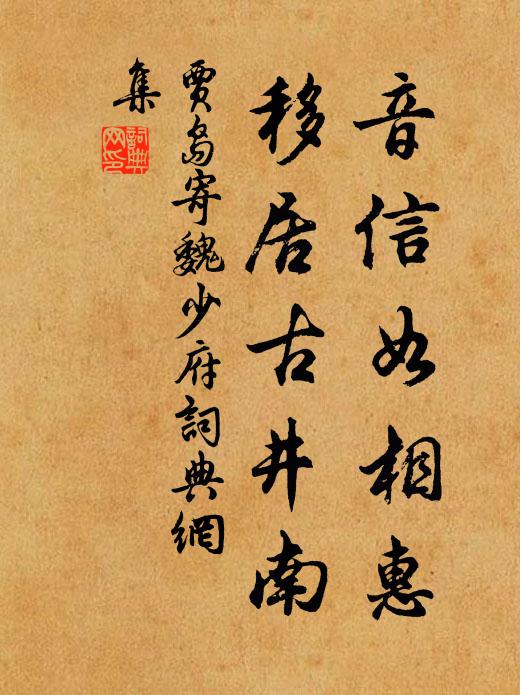 音信如相惠
移居古井南
賈島寄魏少府詞典網
集
詞典
网印